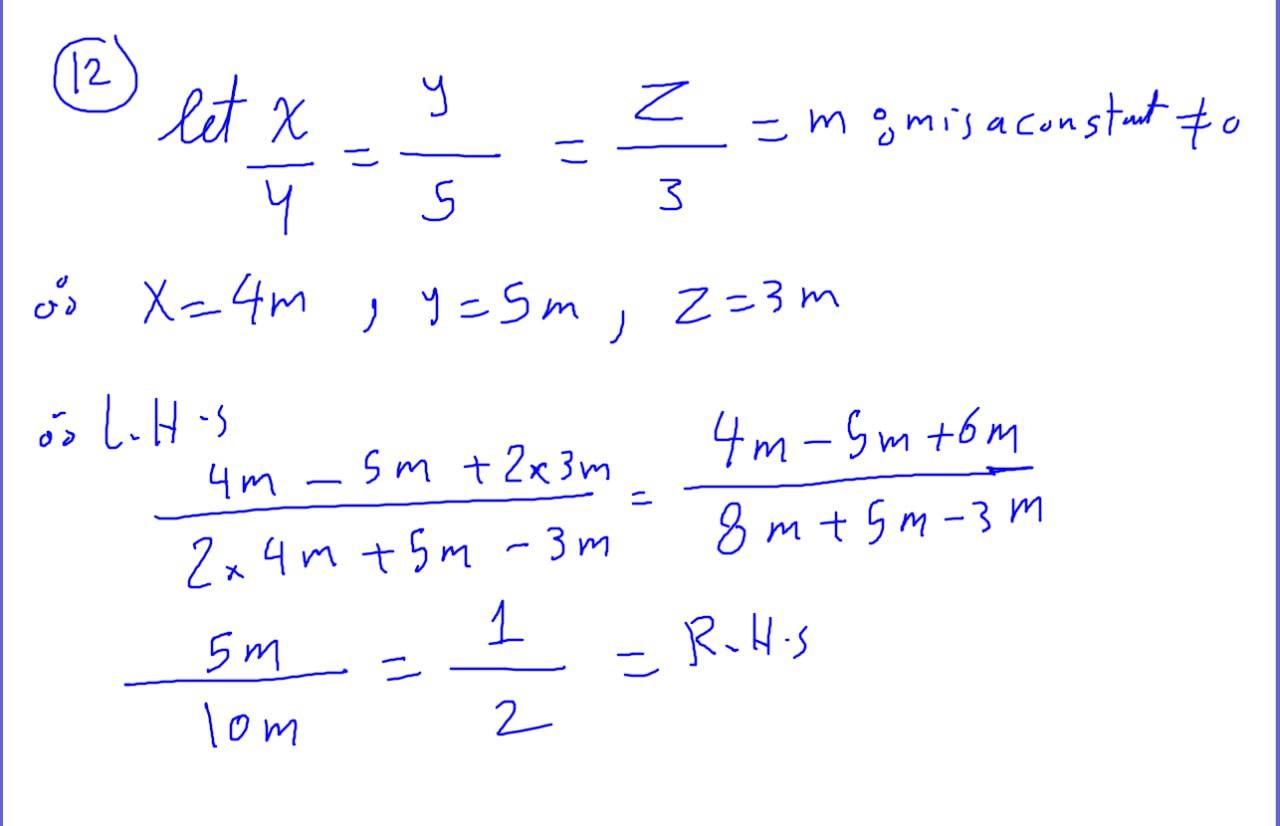 12
let x/4 = y/5 = z/3 = m : m is a constant ≠ 0
∴ x = 4m , y = 5m , z = 3m
∴ L.H.S
(4m - 5m + 2×3m)/(2×4m + 5m - 3m) = (4m - 5m + 6m)/(8m + 5m - 3m)
5m/10m = 1/2 = R.H.S